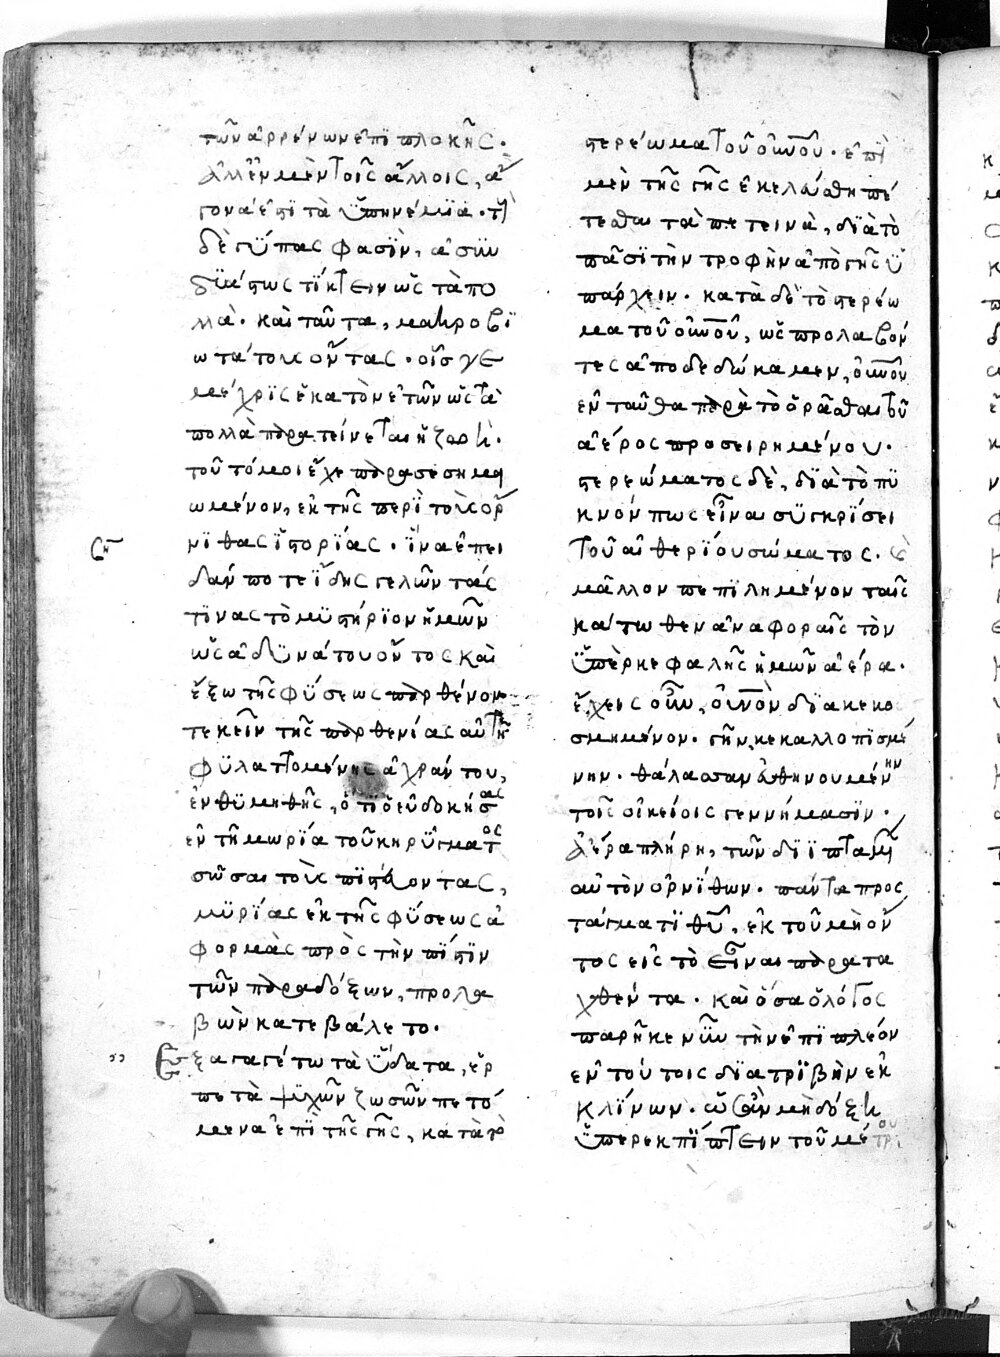 τῶν ἀρρένων ἐπιπλοκῆς·
ἀλλ' ἐν μὲν τοῖς ἄλλοις, ἄ
γονα ἐστὶ τὰ ὑπηνέμια· τοὺς
δὲ γύπας φασὶν, ἀσυν
δυάστως τίκτειν ὡς τὰ πολ
λὰ· καὶ ταῦτα, μακροβι
ωτάτους ὄντας· οἷς γε
μέχρις ἑκατὸν ἐτῶν ὡς τὰ
πολλὰ παρατείνεται ἡ ζωὴ·
τοῦτό μοι ἔχε παρασεσημει
ωμένον, ἐκ τῆς περὶ τοὺς ὄρ
νιθας ἱστορίας· ἵνα ἐπει
δάν ποτε ἴδης γελῶντάς
τινας τὸ μυστήριον ἡμῶν
ὡς ἀδυνάτου ὄντος καὶ
ἔξω τῆς φύσεως παρθένον
τεκεῖν τῆς παρθενίας αὐτῆς
φυλαττομένης ἀχράντου,
ἐνθυμηθῆς, ὅτι ὁ εὐδοκήσας
ἐν τῆ μωρία τοῦ κηρύγματος
σῶσαι τοὺς πιστεύοντας,
μυρίας ἐκ τῆς φύσεως ἀ
φορμὰς πρὸς τὴν πίστιν
τῶν παραδόξων, προλα
βὼν κατεβάλετο·
Ἐξαγαγέτω τὰ ὕδατα, ἑρ
πετὰ ψυχῶν ζωσῶν πετό
μενα ἐπὶ τῆς γῆς, κατὰ τὸ
στερέωμα τοῦ οὐνοῦ· ἐπὶ
μὲν τῆς γῆς ἐκελεύσθη πέ
τεσθαι τὰ πετεινὰ, διὰ τὸ
πᾶσι τὴν τροφὴν ἀπὸ γῆς ὑ
πάρχειν· κατὰ δὲ τὸ στερέω
μα τοῦ οὐνοῦ, ὡς προλαβόν
τες ἀποδεδώκαμεν, οὐνοῦ
ἐνταῦθα παρὰ τὸ ὁρᾶσθαι τοῦ
ἀέρος προσειρημένου·
στερεώματος δὲ, διὰ τὸ πυ
κνόν πως εἶναι συγκρίσει
τοῦ αἰθερίου σώματος· καὶ
μᾶλλον πεπιλημένον ταῖς
κάτωθεν ἀναφοραῖς τὸν
ὑπὲρ κεφαλῆς ἡμῶν ἀέρα·
ἔχεις οὖν, οὐνὸν διακεκο
σμημένον· γῆν κεκαλλοπισμέ
νην· θάλασσαν εὐθηνουμένην
τοῖς οἰκείοις γεννήμασιν·
ἀέρα πλήρη, τῶν διϊπταμένων
αὐτὸν ὀρνίθων· πάντα προσ
τάγματι θυ, ἐκ τοῦ μὴ ὄν
τος εἰς τὸ εἶναι παρατα
χθέντα· καὶ ὅσα ὁ λόγος
παρῆκε νῦν τὴν ἐπιπλέον
ἐν τούτοις διατριβὴν ἐκ
κλίνων· ὡς ἂν μὴ δόξη
ὑπερεκπίπτειν τοῦ μέτρου